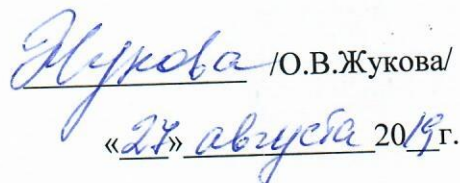 Жукова /О.В.Жукова/
«27» августа 2019г.